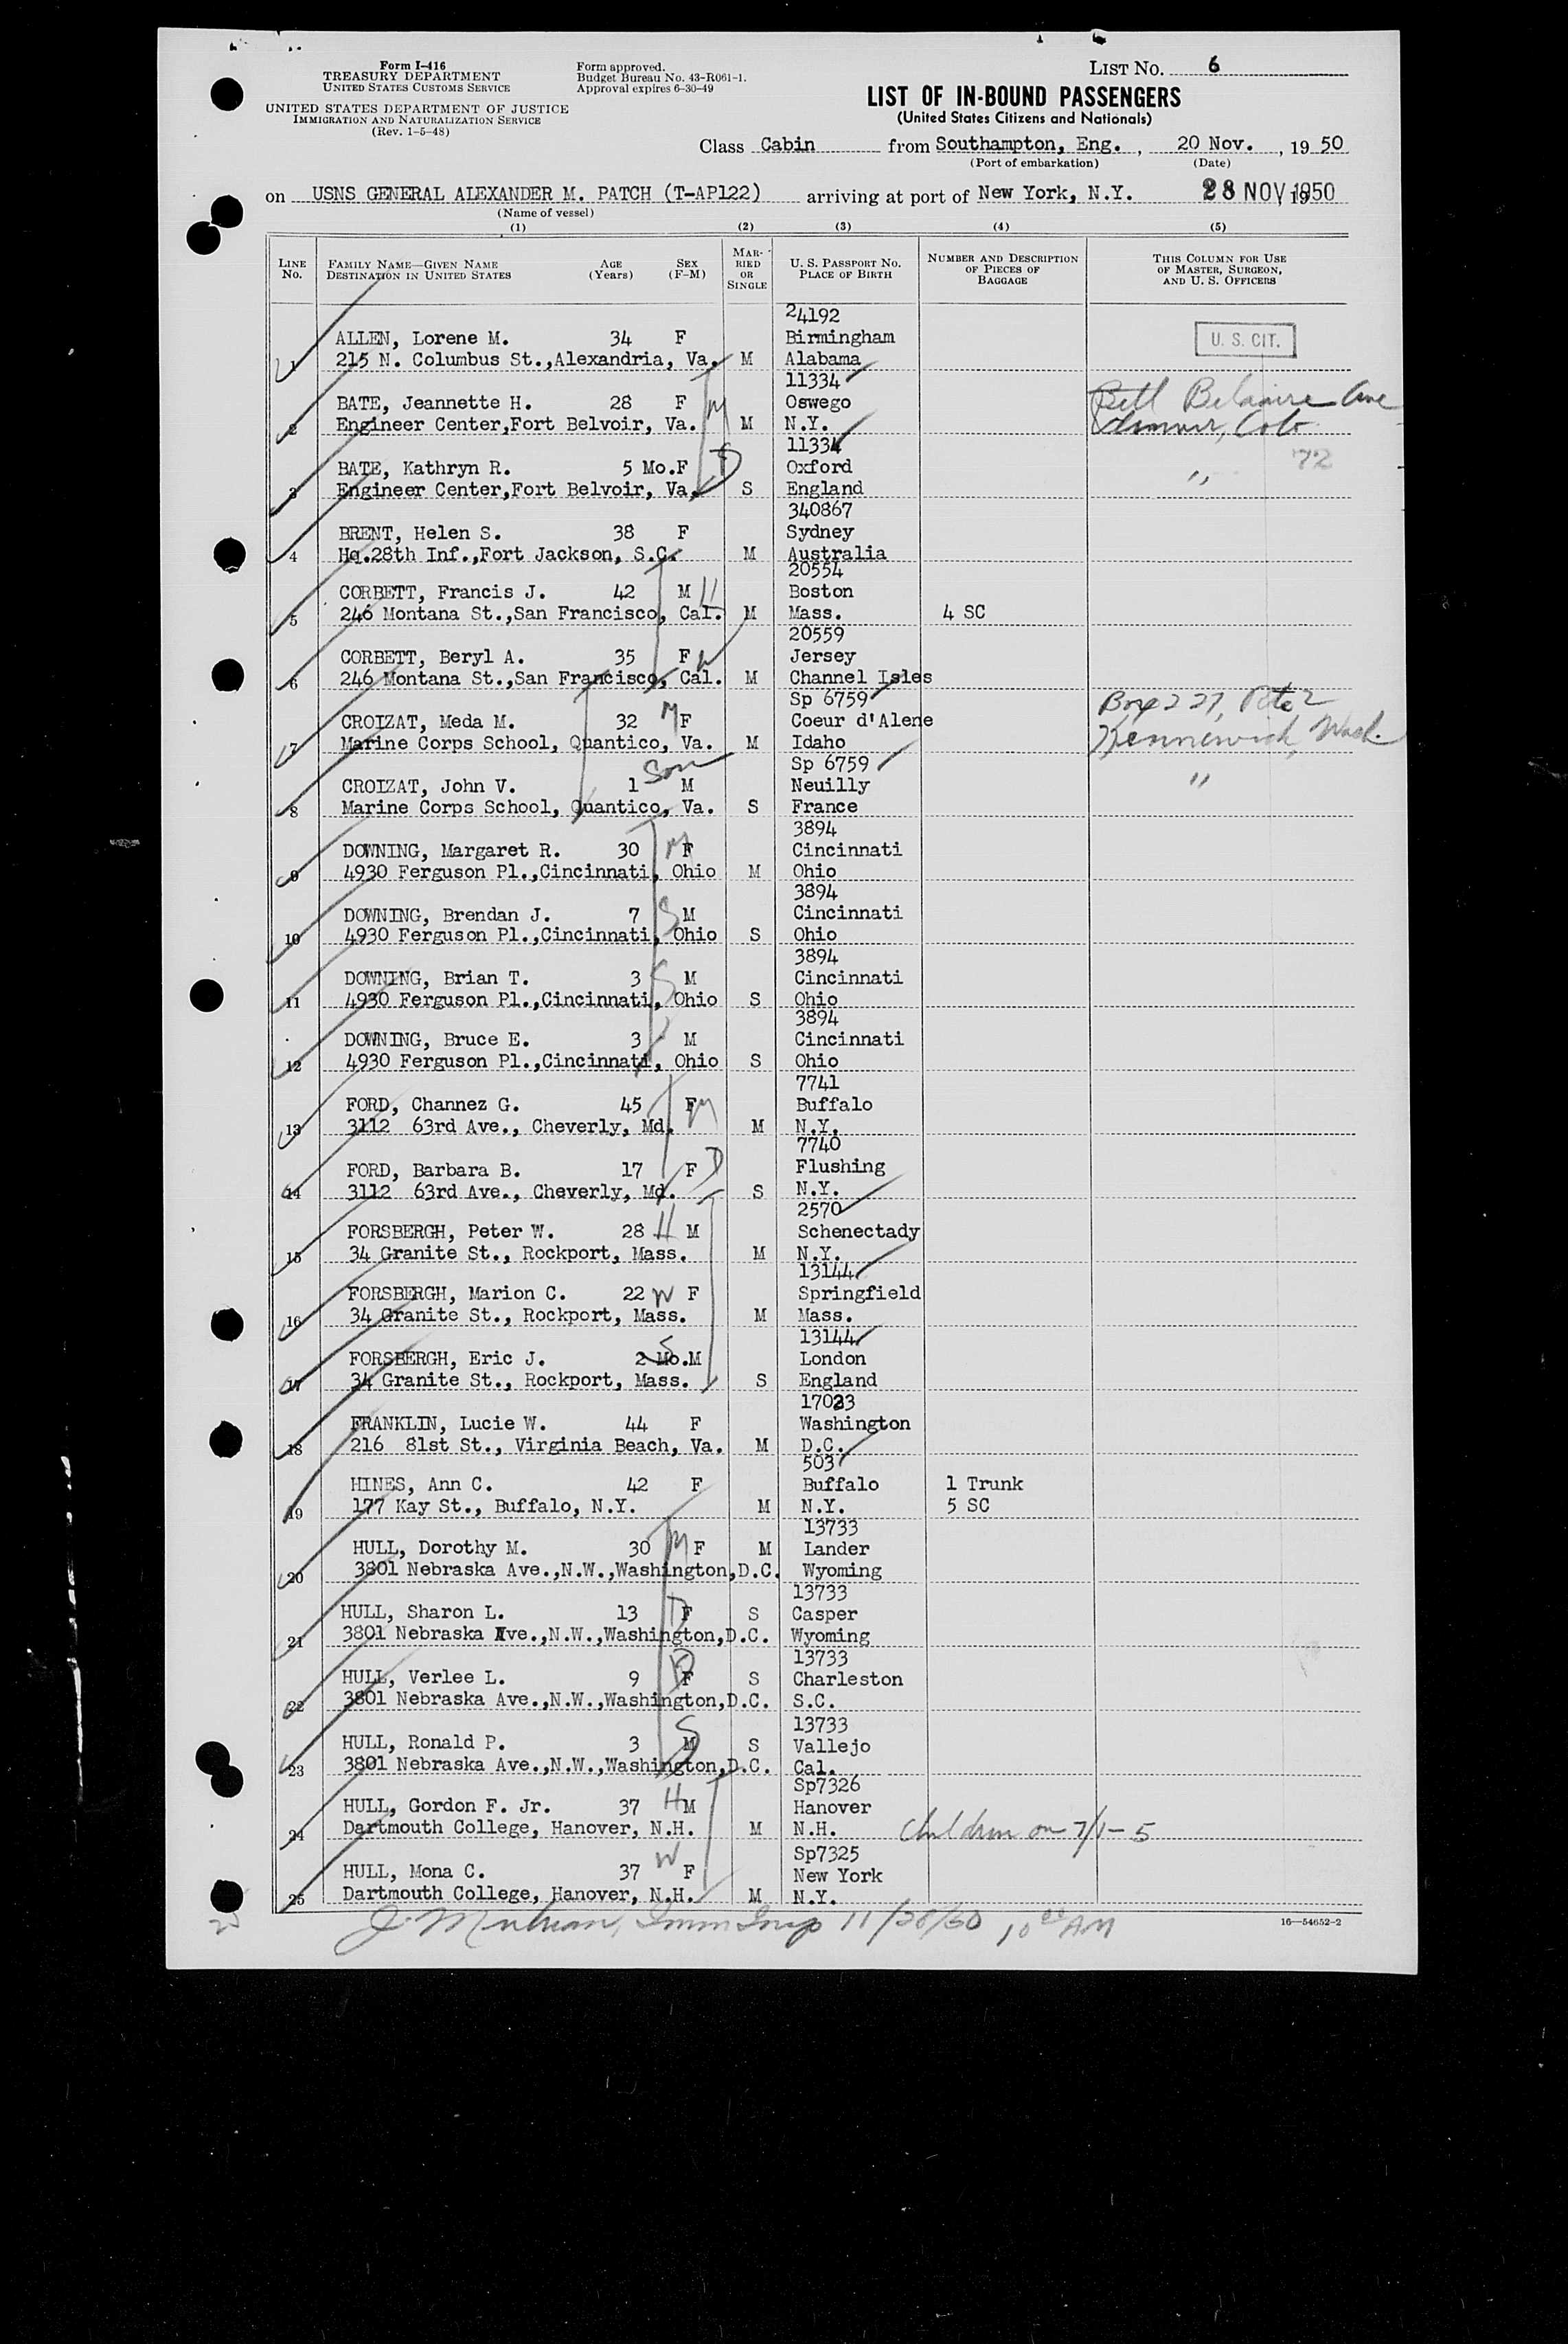 Form I-416
TREASURY DEPARTMENT
UNITED STATES CUSTOMS SERVICE
UNITED STATES DEPARTMENT OF JUSTICE
IMMIGRATION AND NATURALIZATION SERVICE
(Rev. 1-5-48)
Form approved.
Budget Bureau No. 43-R061-1.
Approval expires 6-30-49
LIST NO. 6
LIST OF IN-BOUND PASSENGERS
(United States Citizens and Nationals)
Class Cabin from Southampton, Eng., 20 Nov., 19 50
(Port of embarkation) (Date)
on USNS GENERAL ALEXANDER M. PATCH (T-AP122) arriving at port of New York, N.Y. 28 NOV 1950
(Name of vessel)
(1) (2) (3) (4) (5)
LINE NO. FAMILY NAME—GIVEN NAME DESTINATION IN UNITED STATES AGE (Years) SEX (F-M) MARRIED OR SINGLE U. S. PASSPORT NO. PLACE OF BIRTH NUMBER AND DESCRIPTION OF PIECES OF BAGGAGE THIS COLUMN FOR USE OF MASTER, SURGEON, AND U. S. OFFICERS
24192
ALLEN, Lorene M. 34 F Birmingham U. S. CIT.
1 215 N. Columbus St.,Alexandria, Va. M Alabama
11334
BATE, Jeannette H. 28 F M Oswego
2 Engineer Center,Fort Belvoir, Va. M N.Y. Colo
11334
BATE, Kathryn R. 5 Mo.F D Oxford " 72
3 Engineer Center,Fort Belvoir, Va. S England
340867
BRENT, Helen S. 38 F Sydney
4 Hq.28th Inf.,Fort Jackson, S.C. M Australia
20554
CORBETT, Francis J. 42 M H Boston
5 246 Montana St.,San Francisco, Cal. M Mass. 4 SC
20559
CORBETT, Beryl A. 35 F W Jersey
6 246 Montana St.,San Francisco, Cal. M Channel Isles
Sp 6759
CROIZAT, Meda M. 32 M F Coeur d'Alene Box 227, Rte 2
7 Marine Corps School, Quantico, Va. M Idaho Kennewick, Wash.
Sp 6759
CROIZAT, John V. 1 Son M Neuilly "
8 Marine Corps School, Quantico, Va. S France
3894
DOWNING, Margaret R. 30 M F Cincinnati
9 4930 Ferguson Pl.,Cincinnati, Ohio M Ohio
3894
DOWNING, Brendan J. 7 S M Cincinnati
10 4930 Ferguson Pl.,Cincinnati, Ohio S Ohio
3894
DOWNING, Brian T. 3 S M Cincinnati
11 4930 Ferguson Pl.,Cincinnati, Ohio S Ohio
3894
DOWNING, Bruce E. 3 M Cincinnati
12 4930 Ferguson Pl.,Cincinnati, Ohio S Ohio
7741
FORD, Channez G. 45 F M Buffalo
13 3112 63rd Ave., Cheverly, Md. M N.Y.
7740
FORD, Barbara B. 17 F D Flushing
14 3112 63rd Ave., Cheverly, Md. S N.Y.
2570
FORSBERGH, Peter W. 28 H M Schenectady
15 34 Granite St., Rockport, Mass. M N.Y.
13144
FORSBERGH, Marion C. 22 W F Springfield
16 34 Granite St., Rockport, Mass. M Mass.
13144
FORSBERGH, Eric J. 2 Mo.M S London
17 34 Granite St., Rockport, Mass. S England
17023
FRANKLIN, Lucie W. 44 F Washington
18 216 81st St., Virginia Beach, Va. M D.C.
503
HINES, Ann C. 42 F Buffalo 1 Trunk
19 177 Kay St., Buffalo, N.Y. M N.Y. 5 SC
13733
HULL, Dorothy M. 30 M F M Lander
20 3801 Nebraska Ave.,N.W.,Washington,D.C. Wyoming
13733
HULL, Sharon L. 13 D F S Casper
21 3801 Nebraska Ave.,N.W.,Washington,D.C. Wyoming
13733
HULL, Verlee L. 9 D F S Charleston
22 3801 Nebraska Ave.,N.W.,Washington,D.C. S.C.
13733
HULL, Ronald P. 3 S M S Vallejo
23 3801 Nebraska Ave.,N.W.,Washington,D.C. Cal.
Sp7326
HULL, Gordon F. Jr. 37 H M Hanover
24 Dartmouth College, Hanover, N.H. M N.H. Children on 7/1-5
Sp7325
HULL, Mona C. 37 W F New York
25 Dartmouth College, Hanover, N.H. M N.Y.
Imm Insp 11/28/50 10 00 AM
16—54652-2